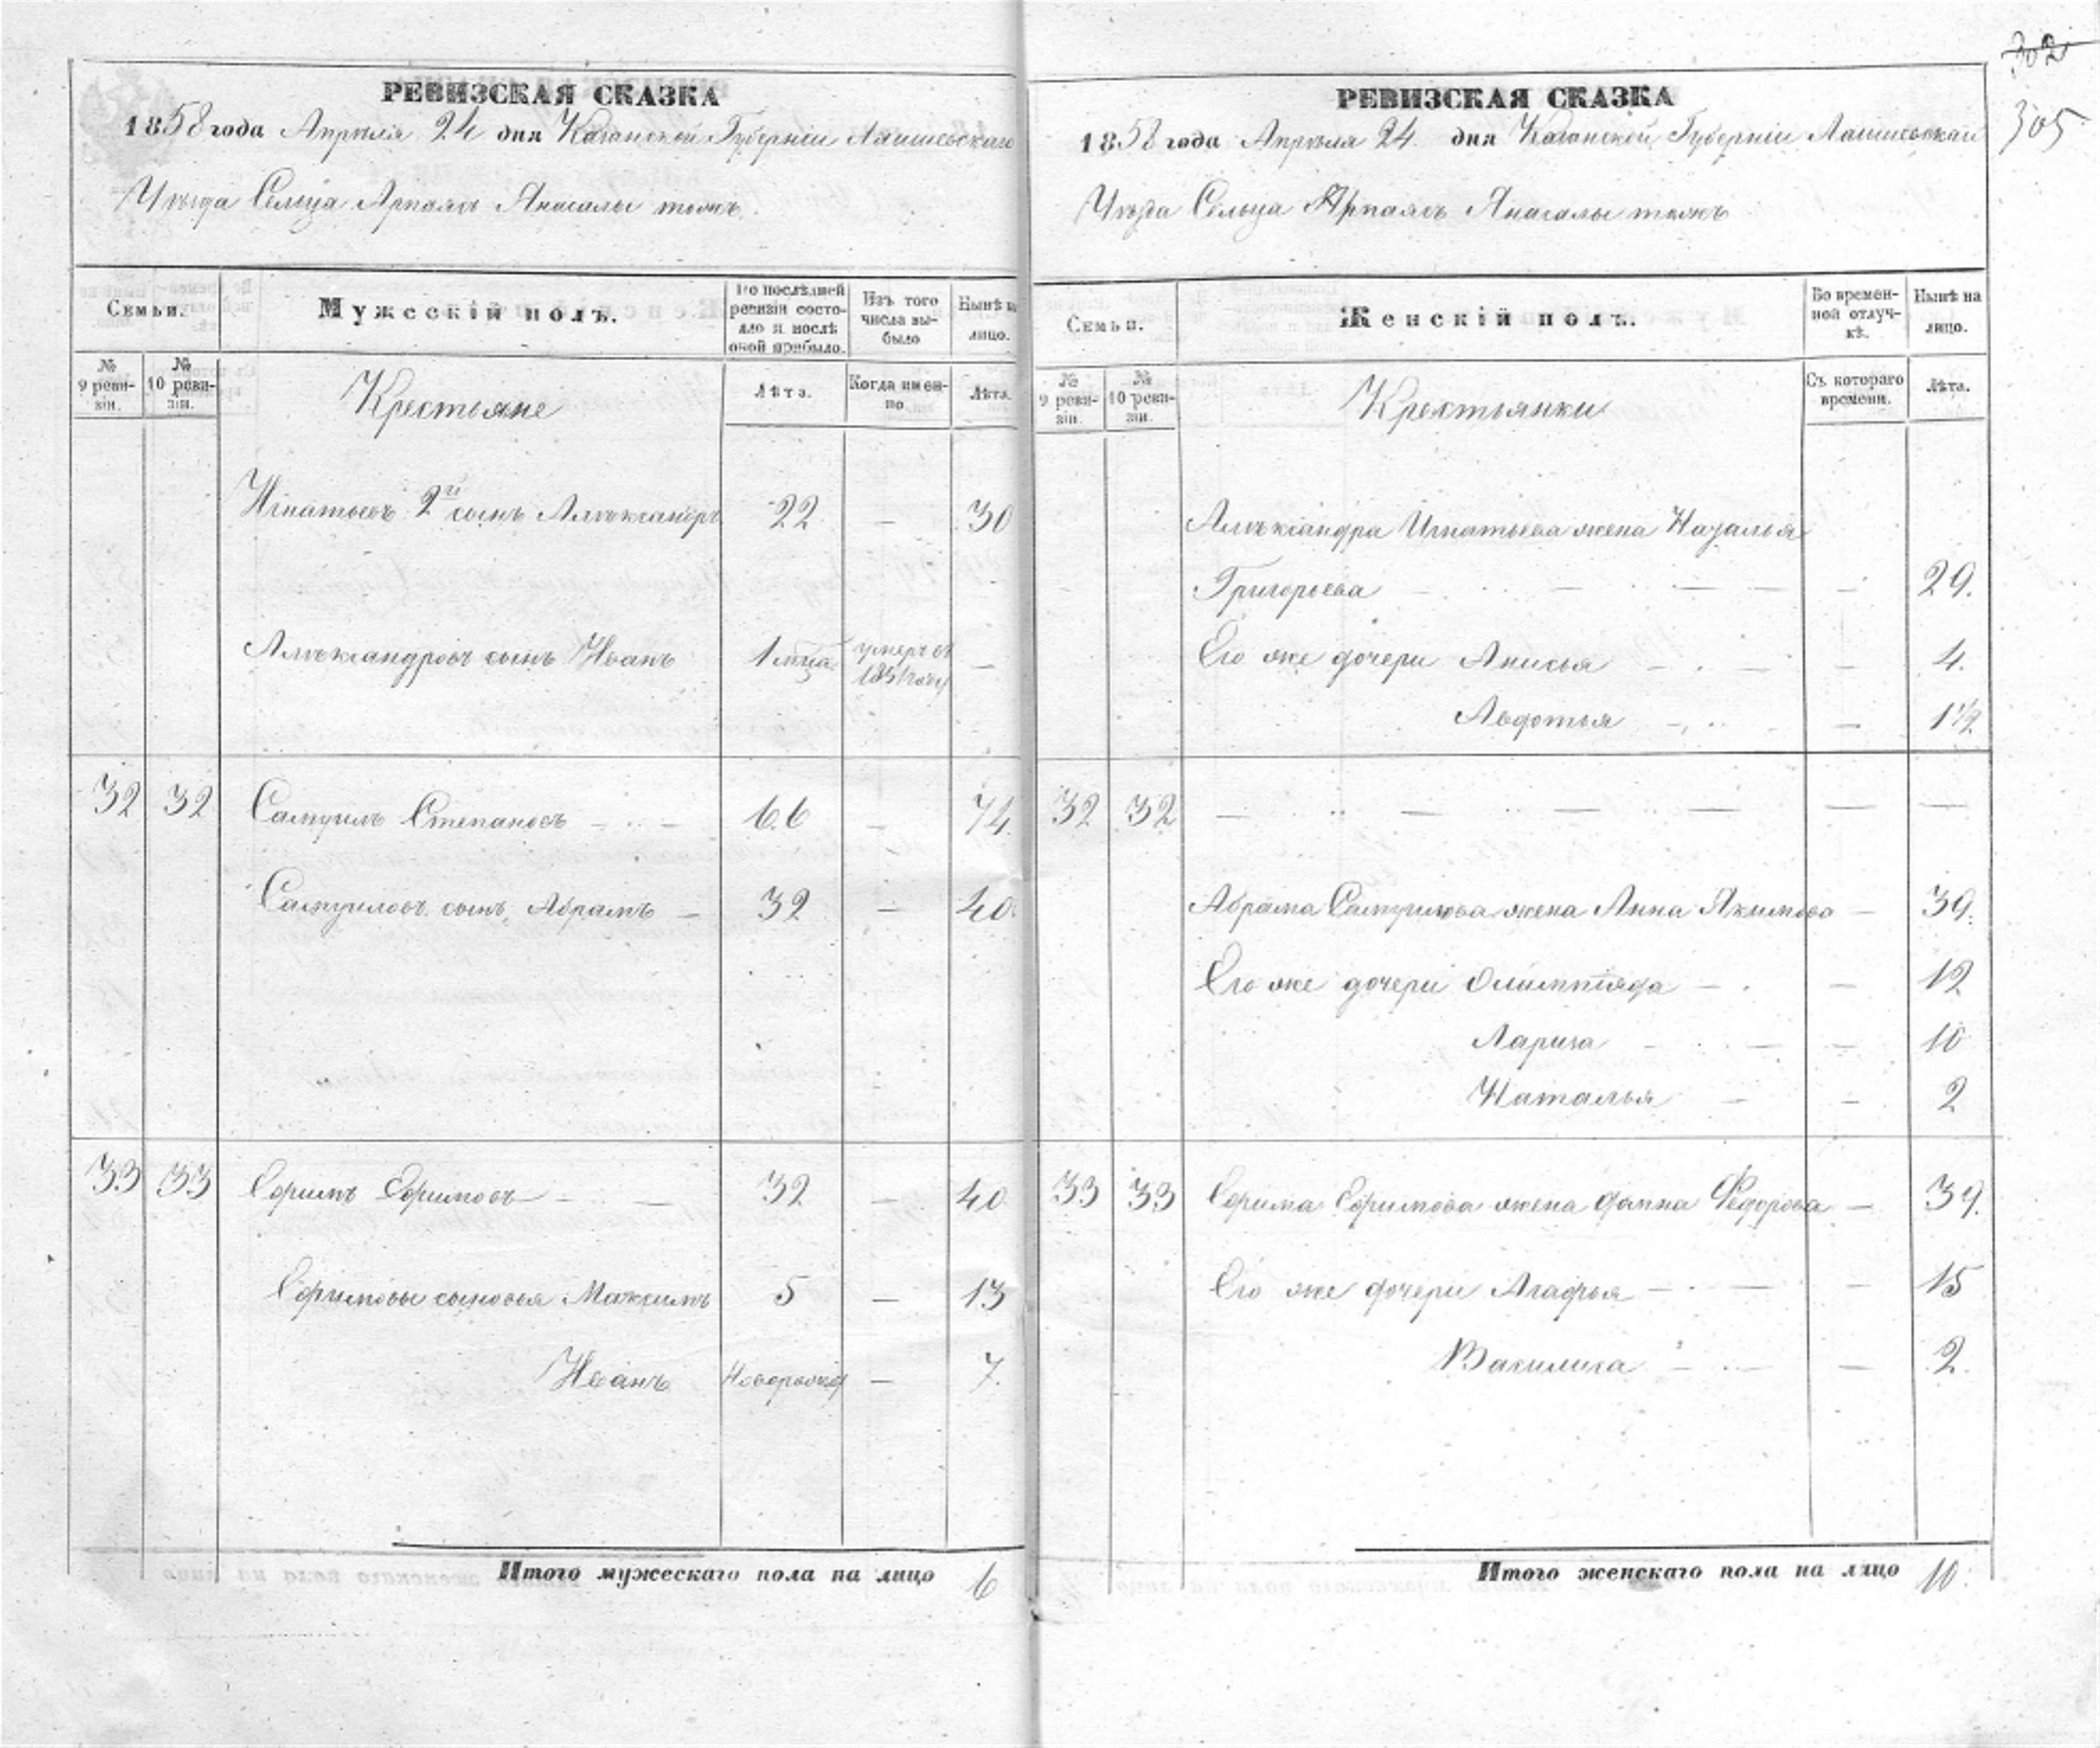 302
305
РЕВИЗСКАЯ СКАЗКА
1858 года Апреля 24 дня Казанской Губерніи Лаишевскаго
Уезда Сельца Арпаясъ Янасалы тожъ.
Семьи.
Мужескій полъ.
По послѣдней ревизіи состояло и послѣ оной прибыло.
Изъ того числа выбыло
Нынѣ на лицо.
№ 9 ревизіи.
№ 10 ревизіи.
Крестьяне
Лѣта.
Когда именно.
Лѣта.
Игнатьевъ 2й сынъ Александръ 22 — 30
Александровъ сынъ Иванъ 1 м-ца умеръ въ 1851 году —
32 32 Самуилъ Степановъ 66 — 74.
Самуиловъ сынъ Абрамъ — 32 — 40.
33 33 Ефимъ Ефимовъ — 32 — 40
Ефимовы сыновья Максимъ 5 — 13
Иванъ новорожд — 7.
Итого мужескаго пола на лицо 6
РЕВИЗСКАЯ СКАЗКА
1858 года Апреля 24. дня Казанской Губерніи Лаишевскаго
Уезда Сельца Арпаясъ Янасалы тожъ
Семьи.
Женскій полъ.
Во временной отлучкѣ.
Нынѣ на лицо.
№ 9 ревизіи.
№ 10 ревизіи.
Крестьянки
Съ котораго времени.
Лѣта.
Александра Игнатьева жена
Григорьева — 29.
Его же дочери Анисья — 4.
Авдотья — 1½
32 32 — — —
Абрама Самуилова жена Анна Якимова — 39.
Его же дочери Олимпіяда — 12
Лариса — 10
Наталья — 2
33 33 Ефима Ефимова жена Домна Федорова — 39.
Его же дочери Агафья — 15
Василиса — 2.
Итого женскаго пола на лицо 10.